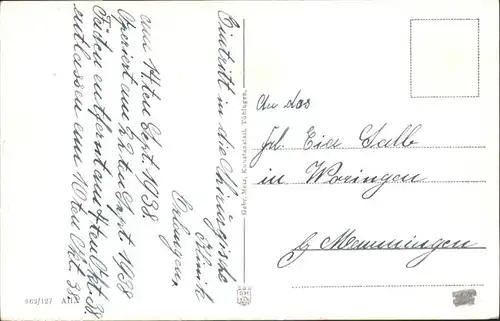 Eintritt in die Chirurgische
Klinik
Erlangen,
am 14ten Sept. 1938.
Operiert am 22ten Sept. 1938
Fäden entfernt am 4ten Okt. 38.
entlassen am 10ten Okt. 38.
Gebr. Metz, Kunstanstalt, Tübingen.
An das
Frl.
in Woringen
b/ Memmingen
962/127